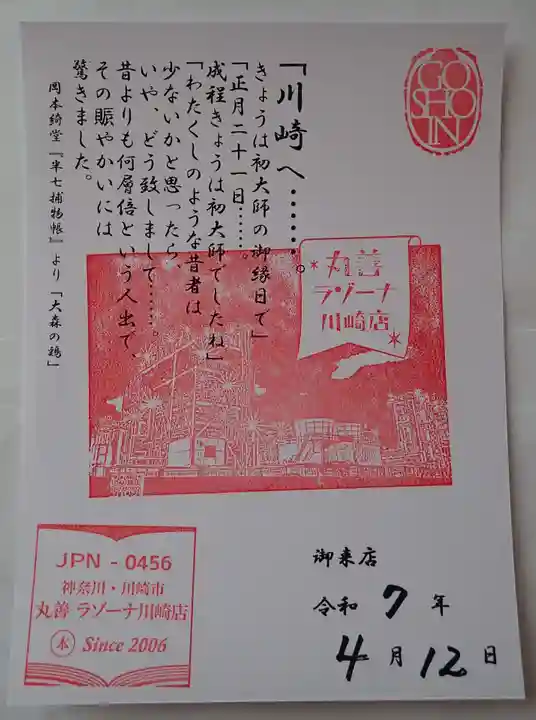 「川崎へ………。
きょうは初大師の御縁日で」
「正月二十一日……。
成程きょうは初大師でしたね」
「わたくしのような昔者は
少ないかと思ったら、
いや、どう致しまして……。
昔よりも何層倍という人出で、
その賑やかいには
驚きました。
岡本綺堂『半七捕物帳』より「大森の鶏」
GO
SHO
IN
丸善
ラゾーナ
川崎店
JPN - 0456
神奈川・川崎市
丸善 ラゾーナ川崎店
本 Since 2006
御来店
令和 7 年
4 月 12 日